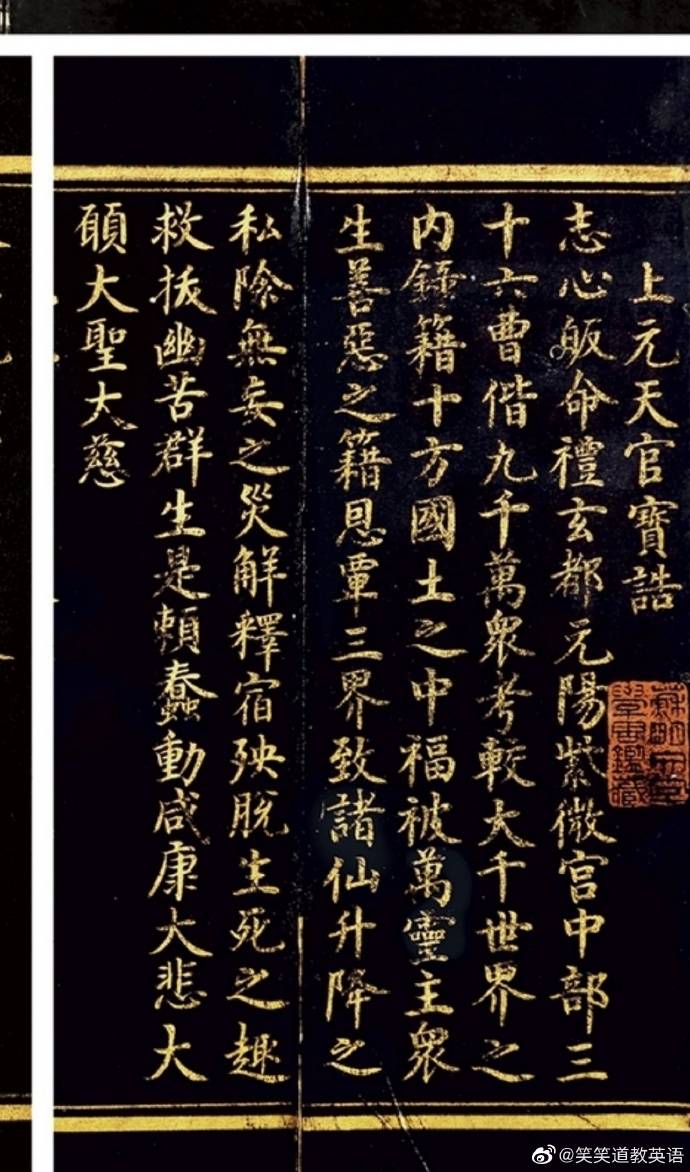 上元天官寶誥
志心皈命禮玄都元陽紫微宮中部三
十六曹偕九千萬衆考較大千世界之
內錄籍十方國土之中福被萬靈主衆
生善惡之籍恩覃三界致諸仙升降之
私除無妄之災解釋宿殃脫生死之趣
救拔幽苦群生是賴蠢動咸康大悲大
願大聖大慈
@笑笑道教英语